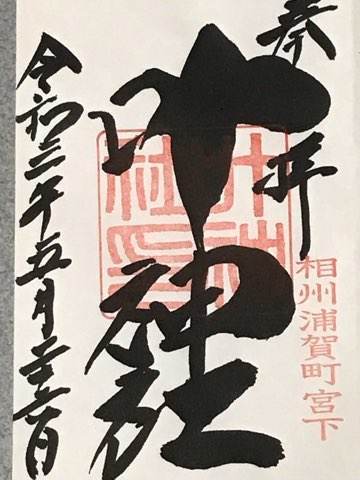 奉拝
相州浦賀町宮下
叶神社
叶神社印
令和三年五月二十六日